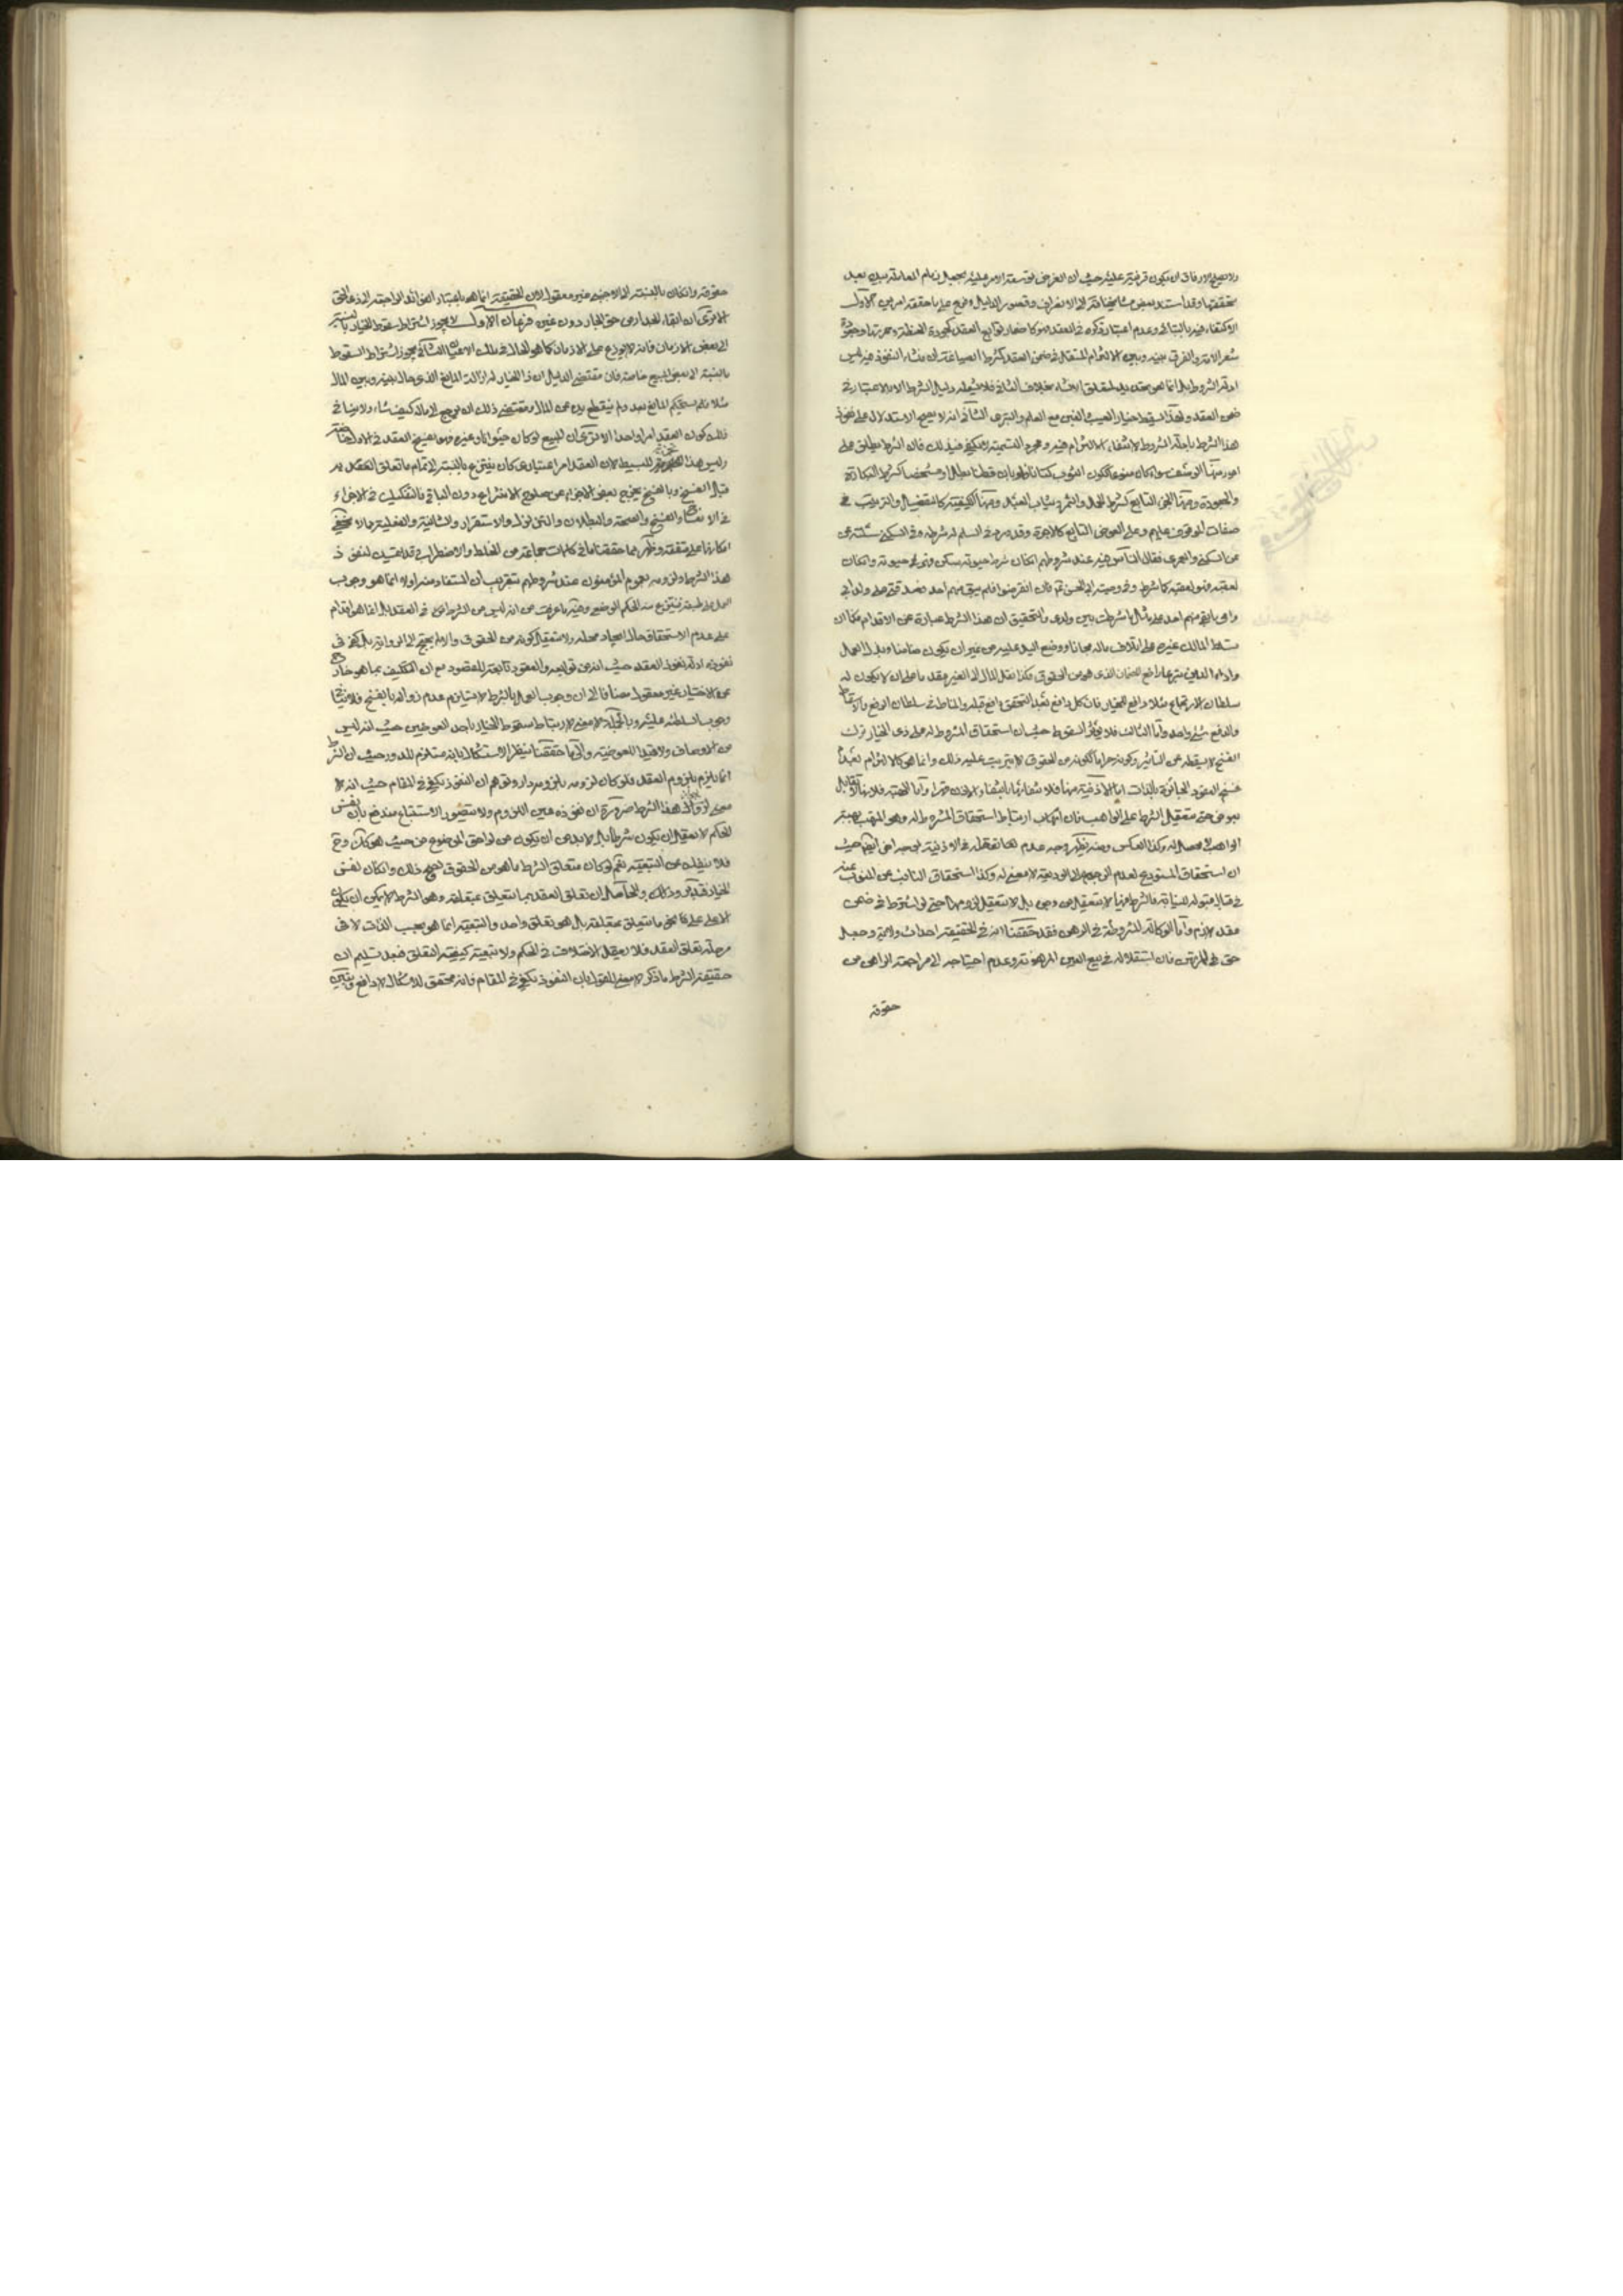 ولا يصح الارفاق ان يكون قرينة عليه حيث ان الغرض توسعة الامر عليه بجعل زمام المعاملة بيده بعد
تحققها وقد استدل بعض مشايخنا الى الانصراف وقصور الدليل وفرع على ما حققه امرين الاول
الاكتفاء فيه بالتباني وعدم اعتبار ذكره في العقد
شعر الامة والفرق بينه وبين الالتزام المستقل في ضمن العقد كشرط الصياغة ان منشاء النفوذ فيه ليس
ادلة الشروط بل انما هو تقييد لمتعلق الانشاء بخلاف الثاني فلا يشمله دليل الشرط الا بالاعتبار في
ضمن العقد ولهذا يسقط خيار العيب الغبن مع العلم والتبري الثاني انه لا يصح الاستدلال على نفوذ
هذا الشرط بادلة الشروط لانتفاء الالتزام فيه ومجرد التسمية لا يكفي في ذلك فان الشرط يطلق على
امور منها الوصف سواء كان منوعا ككون الثوب كتانا فظهر بان قطنا بطل او مشخصا كشرط البكارة
والجعودة ومنها الجزء التابع كشرط الحمل والثمرة وثياب العبد ومنها الكيفية كالتفضيل والترتيب في
صفات الموقوف عليهم وعلى العوض التابع كالاجرة وقد ورد في السلم له شرطه وفي السكنى سئلته عن
عن السكنى والعمرى فقال الناس فيه عند شروطهم ان كان شرط حيوته سكن فهو على حيوته وان كان
لعقبه فهو لعقبه كما شرط وفي وصيته ابي الحسن ثم فان انقرضوا فلم يبق منهم احد فصدقتي على ولد ابي
وامي ما بقي منهم احد على مثل ما شرطت بين ولدي والتحقيق ان هذا الشرط عبارة عن الاقدام فكما ان
تسلط المالك غيره على اتلاف ماله مجانا ووضع اليد عليه من غير ان يكون ضامنا وبذل العمل
واداء الدين متبرعا رافع للضمان الذي هو من الحقوق فكذا نقل المال الى الغير بعقد ما على ان لا يكون له
سلطان الارتجاع مثلا دافع للخيار فان كل دافع بعد التحقق دافع قبله والمناط في سلطان الرفع والاسقاط
والدفع شيء واحد واما الثالث فلا يؤثر السقوط حيث ان استحقاق المشروط له على ذي الخيار ترك
الفسخ لا يسقطه عن التاثير وكونه حراما ككونه من الحقوق لا يترتب عليه ذلك وانما هو كالالتزام بعدم
فسخ العقود الجائزة بالذات اما الاذنية منها فلانتفائها بانتفاء الاذن قهرا واما الهبة فلانها لا تقابل
بعوض حتى يتعقل الشرط على الواهب فان اتهاب ارتباط استحقاق المشروط له وهو المتهب بهبة
الواهب لا محصل له وكذا العكس ومنه يظهر وجه عدم لها تعقل في الاذنية لوجه امن اليهم حيث
ان استحقاق المستودع لعدم الرجوع في الوديعة لا معنى له وكذا استحقاق النائب عن المنوب عنه
في مقابل قبوله للنيابة فالشرط فيها لا يتعقل من وجه بل لا يتعقل لزومها حتى لو اشترط في ضمن
عقد لازم واما الوكالة المشروطة في الرهن فقد حققنا انه في الحقيقة احداث ولاية وجعل
حق للمرتهن فان استقلاله في بيع العين المرهونة وعدم احتياجه الى مراجعة الراهن من
حقوقه
حقوقه وان كان بالنسبة الى الاجنبي غير معقول لان الحقيقة انما هو باعتبار الفوائد الراجعة الى ذي الحق
الا ترى ان ابقاء الجدار من حق الجار دون غيره فرعان الاول لا يجوز اشتراط سقوط الخيار بالنسبة
الى بعض الازمان فانه لا يوزع على الازمان كما هو الحال في ملك الاعيان الثاني يجوز اشتراط السقوط
بالنسبة الى بعض المبيع خاصة فان مقتضى الدليل ان ذا الخيار له ازالة المانع الذي حال بينه وبين المال
مثلا فلم يستحكم المانع بعد ولم ينقطع يده عن المال ومقتضى ذلك ان يرجع الى ماله كيف شاء ولا ينافي
ذلك كون العقد امرا واحدا الا ترى ان المبيع لو كان حيوانا وغيره فهو يفسخ العقد في الاول خاصة
وليس هذا تجزية للبسيط لان العقد امر اعتباري كان ينتزع بالنسبة الى تمام ما تعلق العقد به
قبل الفسخ وبالفسخ يخرج بعض الاجزاء عن صلوح الانتزاع دون الباقي فالتفكيك في الاجزاء
في الانشاء والفسخ والصحة والبطلان والتزلزل والاستقرار والشانية والفعلية مما لا ينبغي
انكاره على متفقه وظهر بما حققنا ما في كلمات جماعة من الخلط والاضطراب قد يتمسك لنفوذ
هذا الشرط ولزومه بعموم المؤمنون عند شروطهم بتقريب ان المستفاد منه اولا انما هو وجوب
العمل بالشرط ثم ينتزع منه الحكم الوضعي وفيه ما عرفت من انه ليس من الشرط في العقد بل انما هو اقدام
على عدم الاستحقاق حال ايجاد محله ولا يتعقل كونه من الحقوق والا لم يحتج الى الرواية بل كفى في
نفوذه ادلة نفوذ العقد حيث انه من توابعه والعقود تابعة للقصود مع ان التكليف بما هو خارج
عن الاختيار غير معقول مضافا الى ان وجوب العمل بالشرط لا يستلزم عدم زواله بالفسخ فلا منشا
وجوب السلطنة عليه وبالجملة لا معنى لارتباط سقوط الخيار باحد العوضين حيث انه ليس
من الاوصاف ولا قيدا للعوضية والى ما حققنا ينظر الاستشكال بانه مستلزم للدور حيث ان الشرط
انما يلزم بلزوم العقد فلو كان لزومه بلزومه دار وتوهم ان النفوذ يكفي في المقام حيث انه لا
معنى لزوال هذا الشرط ضرورة ان نفوذه عين اللزوم ولا يتصور الاستتباع مندفع بان نفس
الحكم لا يعقل ان يكون شرطا بل لا بد من ان يكون من لواحق الموضوع من حيث هو كذلك ومع
فلا ينفك عن التبعية نعم لو كان متعلق الشرط ما هو من الحقوق لصح ذلك وان كان نفس
الخيار فتدبر وذلك والحاصل ان تعلق العقد بما يتعلق بمتعلقه وهو الشرط لا يمكن ان يكون
الا على على نحو ما يتعلق بمتعلقه بل هو تعلق واحد والتبعية انما هو بحسب الذات لا في
مرحلة تعلق العقد فلا يعقل الاختلاف في الحكم ولا تبعية كيفية التعلق فبعد تسليم ان
حقيقة الشرط ما ذكر لا معنى للقول بان النفوذ يكفي في المقام فانه محقق للاشكال لا دافع